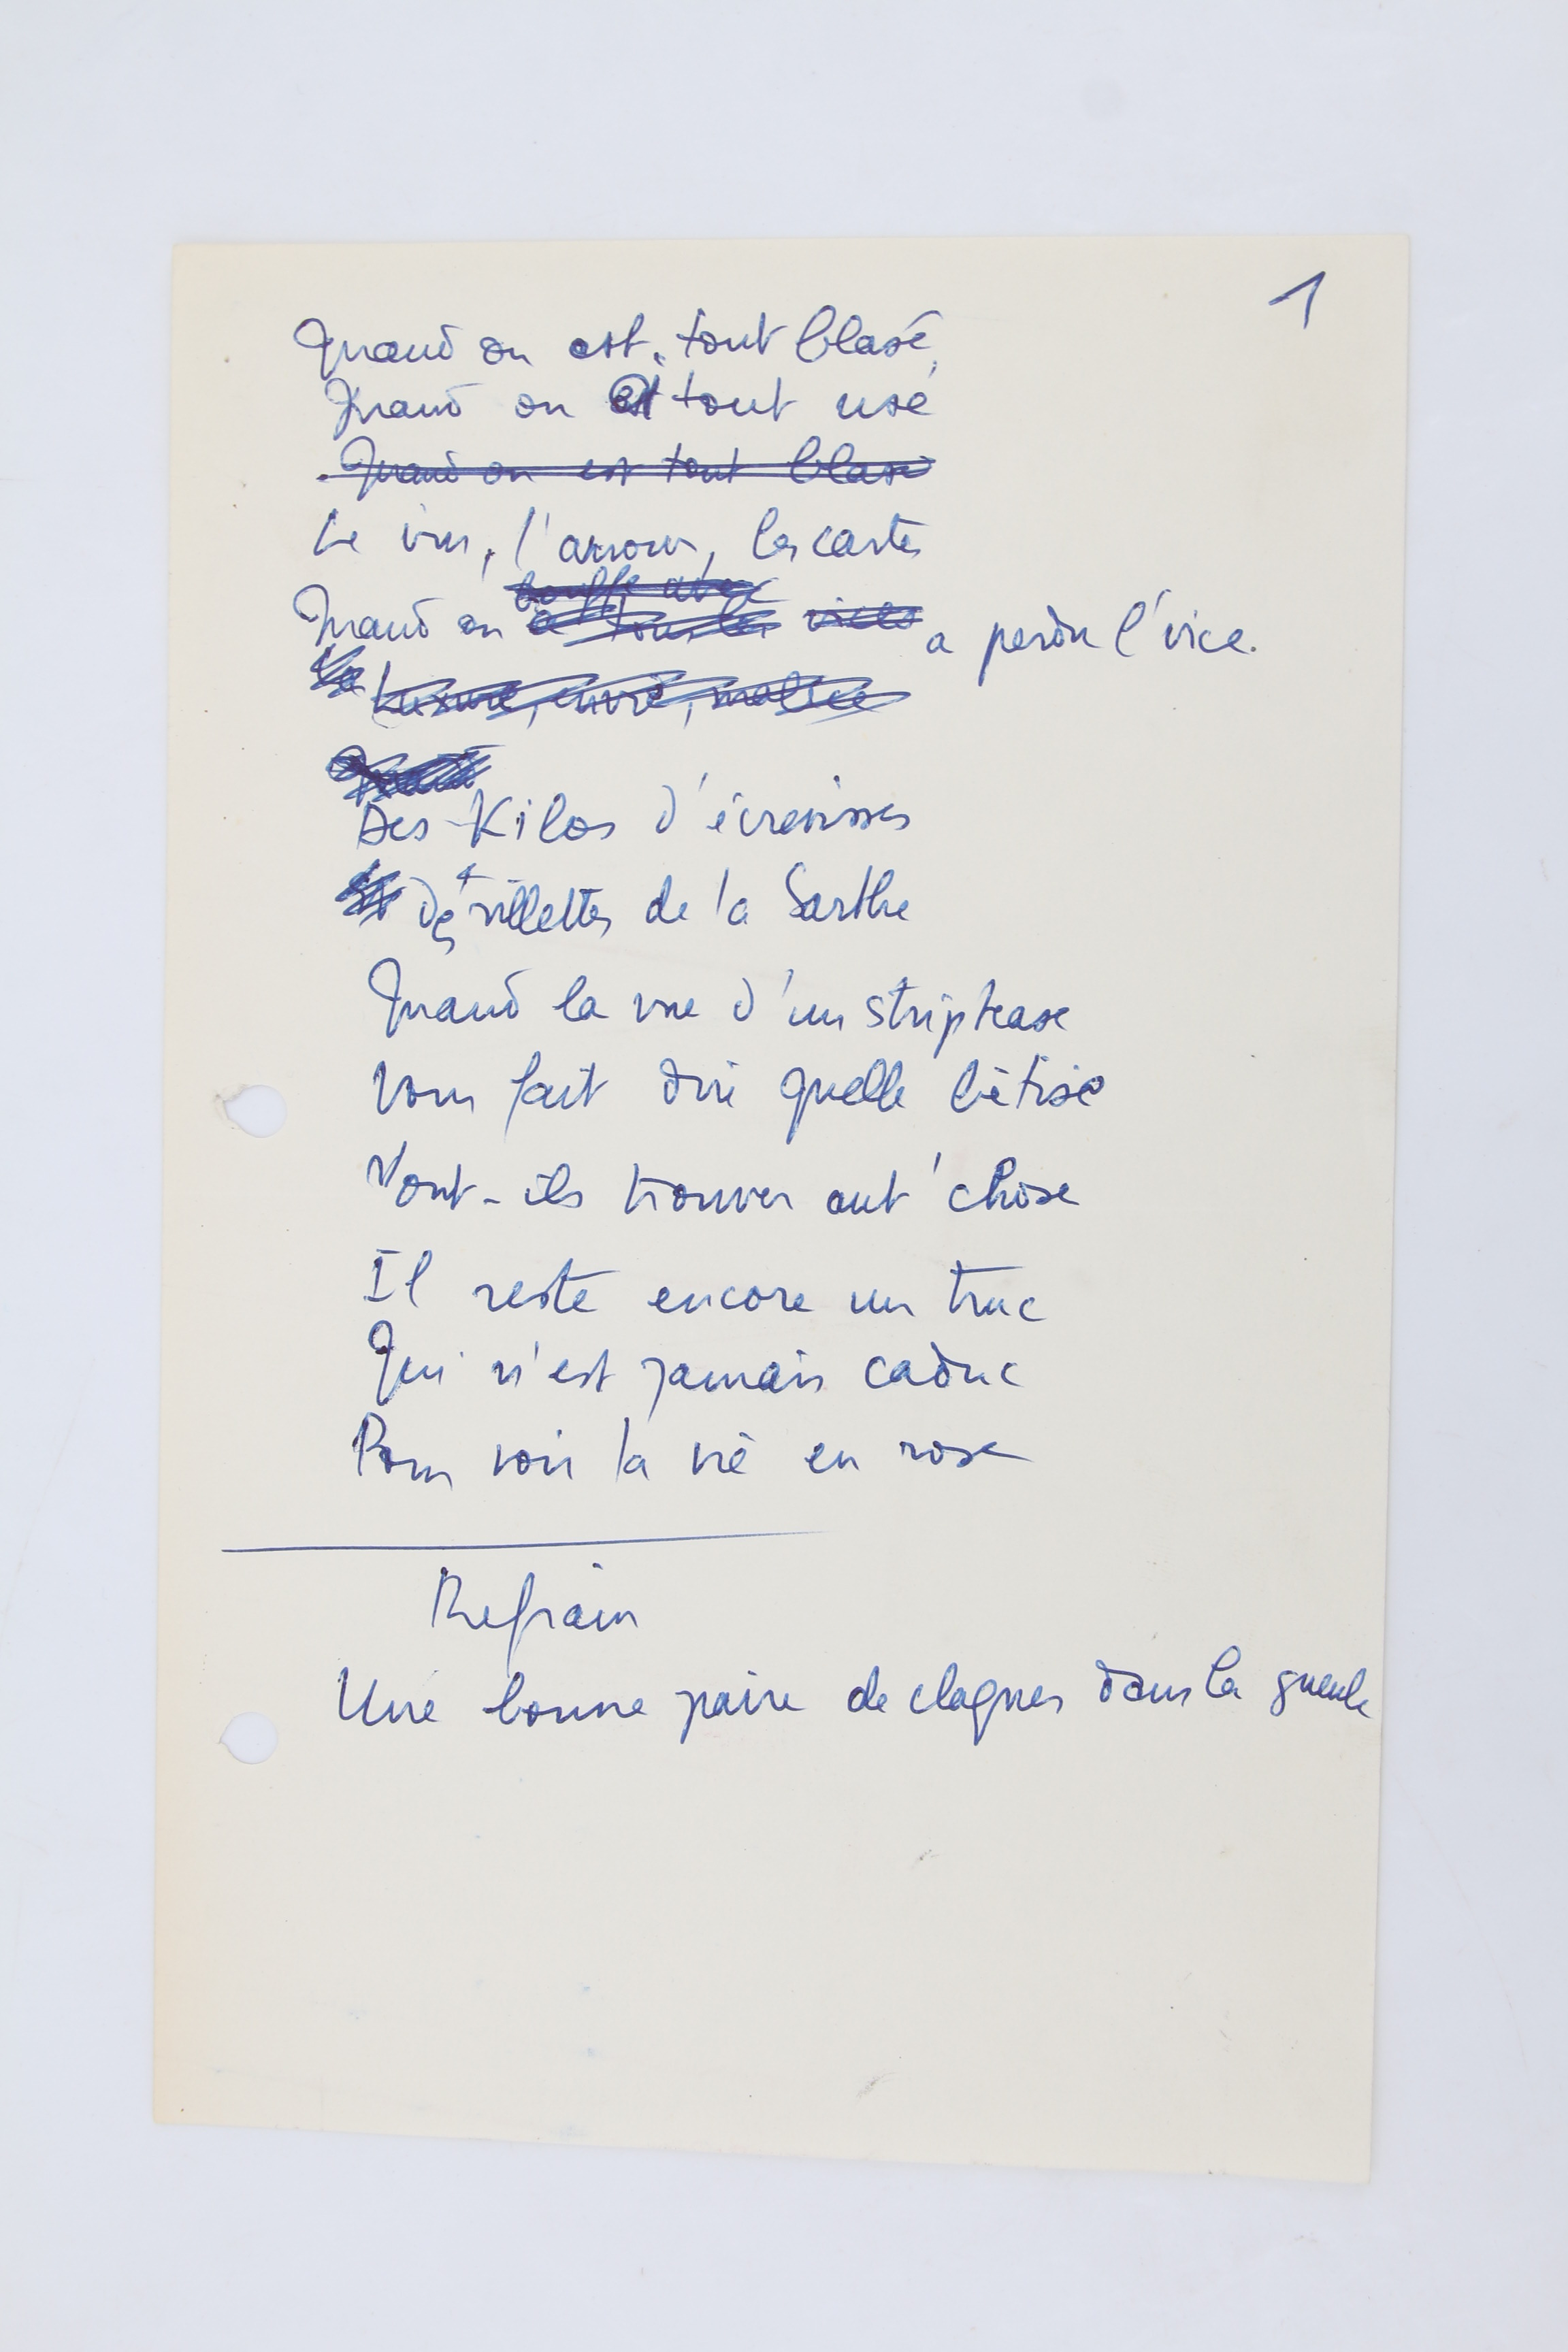 1
Quand on est tout blasé
Quand on a tout usé
Quand on est tout blasé
Le vin, l'amour, les cartes
bouffe avec
Quand on a tous les vices a perdu l'vice.
Luxure, envie, malice
Quand
Des Kilos d'écrevisses
Des rillettes de la Sarthe
Quand la vue d'un striptease
Vous fait dire quelle bêtise
Vont-ils trouver aut'chose
Il reste encore un truc
Qui n'est jamais caduc
Pour voir la vie en rose
Refrain
Une bonne paire de claques dans la gueule